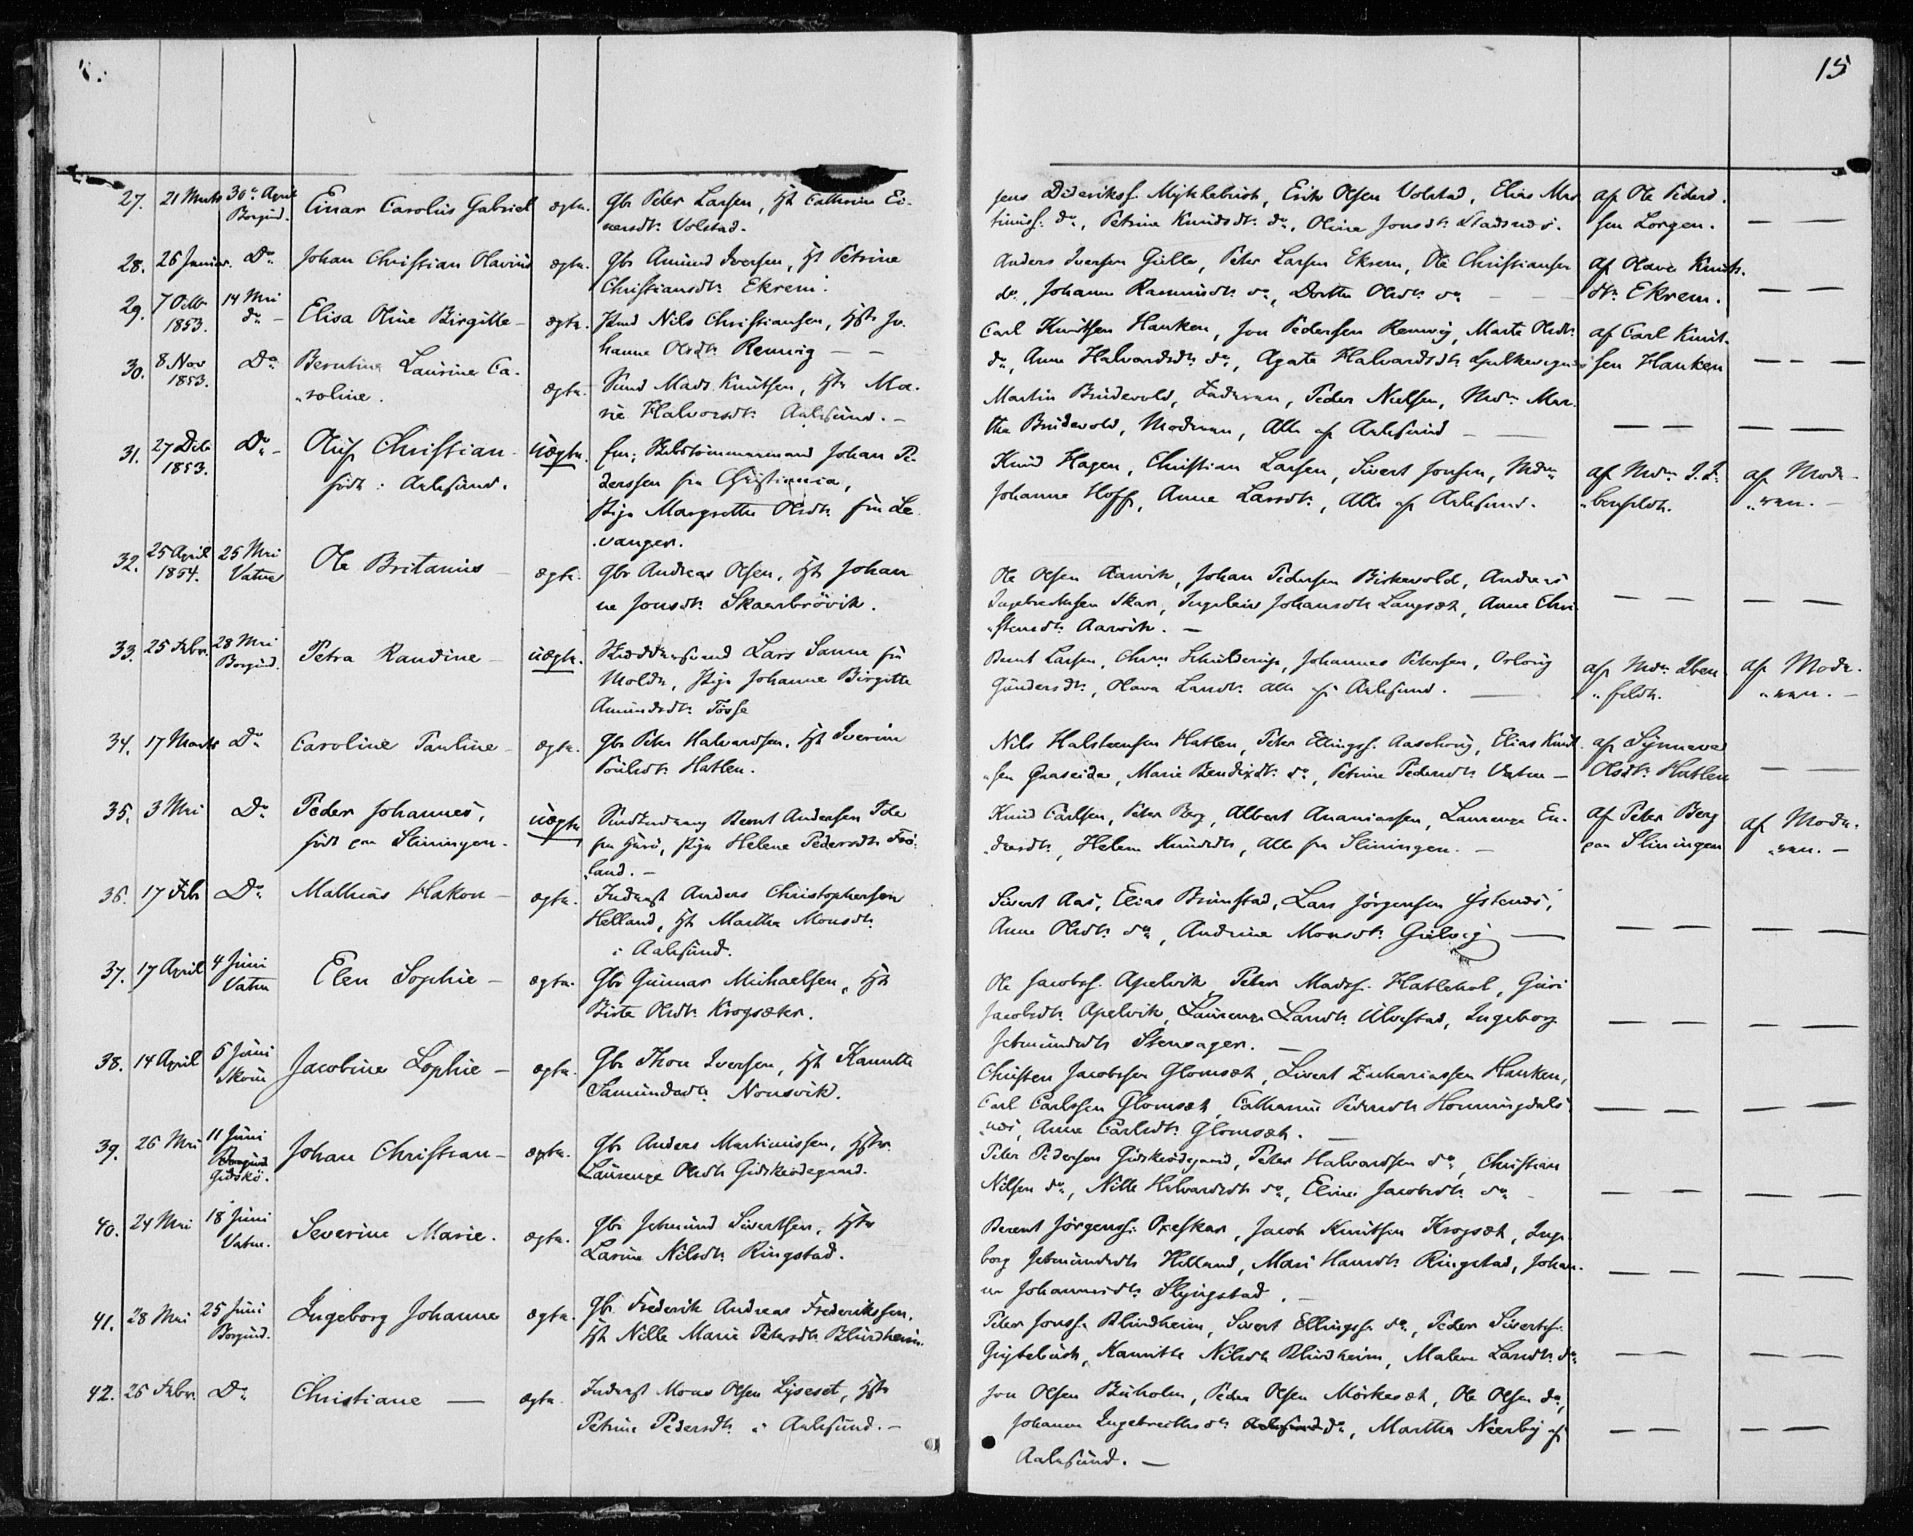 15
27. 21 Marts 30te April Borgund. Einar Carolus Gabriel ægte. Gbr Peter Larsen, Hst Cathrine Ei-
nersdtr Volstad.
Jens Dideriksf. Myklebust, Erik Olsen Volstad, Elias Mar-
tinusf. do, Petrine Knudsdtr do, Oline Jonsdtr Stadsnes.
af Ole Peders-
sen Lorgen.
28. 26 Januar. Do Johan Christian Olavius ægte. Gbr Amund Iversen, Hst Petrine
Christiansdtr Ekrem.
Anders Iversen Gulle, Peter Larsen Ekrem, Ole Christiansen
do, Johanne Rasmusdtr do, Dorthe Olsdtr do
af Olave Knuts-
dtr Ekrem.
29. 7 Octbr 1853. 14 Mai do Elisa Oline Birgitte ægte. Nils Christiansen, Hstr Jo-
hanne Olsdtr Remvig
Carl Knutsen Hanken, Jon Pedersen Remvig, Marte Olsdtr
do, Anne Halvardsdtr do, Agate Halvardsdtr
af Carl Knut-
sen Hanken
30. 8 Nov 1853. Do Berntine Laurine Ca-
roline.
ægte. Mads Knutsen, Hstr Ma-
rie Halvorsdtr Aalesund.
Martin Brudevold, Faderen, Peder Nielsen, Mdm Mar-
the Brudevold, Moderen, Alle af Aalesund
31. 27 Dcbr 1853. Do Oluf Christian
født i Aalesund.
uægte. fm: Skibstømmermand Johan Pe-
dersen fra Christiania,
Pige Margrethe Olsdtr fra Le-
vanger.
Knud Hagen, Christian Larsen, Sivert Jonsen, Mdm
Johanne Hoff, Anne Larsdtr, Alle af Aalesund.
af Mdm I.
benfeldt.
af Mode-
ren.
32. 25 April 1854. 25 Mai Vatne Ole Britanius ægte. Gbr Andreas Olsen, Hst Johan-
ne Jonsdtr Skaarbrøvik.
Ole Olsen Aarvik, Johan Pedersen Birkevold, Andreas
Ingebrechtsen Skar, Johansdtr Langset, Anne Chri-
stensdtr Aarvik.
33. 25 Febr. 28 Mai Borgund. Petra Randine uægte. Skræddersvend Lars Sanne fra
Molde, Pige Johanne Birgitte
Amundsdtr Tosse
Bernt Larsen, Chren Schulderup, Johannes Petersen,
Gundersdtr, Olava Larsdtr Alle fra Aalesund.
af Mdm Iben-
feldt.
af Mode-
ren.
34. 17 Marts Do Caroline Pauline ægte. Gbr Peter Halvardsen, Hst Iverine
Poulsdtr Hatlen.
Nils Halstensen Hatlen, Peter Ellingsf. Aasehoug, Elias Knud-
sen Graseide, Marie Bendixdtr do, Petrine Pedersdtr Vatne
af Synneva
Olsdtr Hatlen
35. 3 Mai Do Peder Johannes,
født paa Slinningen.
uægte. Bernt Andersen
fra Giskø, Pige Helene Pedersdtr
land.
Knud Carlsen, Peter Berg, Albert Ananiassen, Laurenze En-
dresdtr, Helene Knudsdtr, Alle fra Slinningen.
af Peter Berg
paa Slinningen
af Mode-
ren.
36. 17 Febr Do Mathias Hakon ægte. Inderst Anders Christophersen
Helland, Hst Marthe Monsdtr
i Aalesund.
Sivert Aas, Elias Brunstad, Lars Jørgensen Ystenes,
Anne Olsdtr do, Andrine Monsdtr Gulvig
37. 17 April 4 Juni Vatne Elen Sophie ægte. Gbr Gunnar Michaelsen, Hst
Birte Olsdtr Krogsæter.
Ole Jacobsf. Apelvik, Peter Madsf. Hatlehol, Guri
Jacobsdtr Apelvik, Laurenze Larsdtr Ulvestad, Ingeborg
Jetmundsdtr Stensager.
38. 14 April 5 Juni Skouu Jacobine Sophie ægte. Gbr Thore Iversen, Hst Kanutte
Samundsdtr Nonsvik.
Christen Jacobsen Glomsæt, Sivert Zachariassen Hanken,
Carl Carlsen Glomsæt, Catharine Pedersdtr Honningdals-
næs, Anne Carlsdtr Glomsæt.
39. 26 Mai 11 Juni Borgund Gidskø. Johan Christian ægte. Gbr Anders Martinussen, Hstr
Laurenze Olsdtr Gidskeødegaard.
Peter Pedersen Gidskeødegaard, Peter Halvardsen do, Christian
Nilsen do, Nille Halvardsdtr do, Eline Jacobsdtr do
40. 24 Mai 18 Juni Vatne. Severine Marie. ægte. Gbr Jetmund Sivertsen, Hstr
Larine Nilsdtr Ringstad.
Berent Jørgensf. Opeskar, Jacob Knutsen Krogsæt, Inge-
borg Jetmundsdtr Helland, Mari Hansdtr Ringstad, Johan-
ne Johannesdtr Slyngstad.
41. 28 Mai 25 Juni Borgund. Ingeborg Johanne ægte. Gbr. Frederik Andreas Frederiksen,
Hst Nille Marie Petersdtr Blindheim.
Peter Jonsf. Blindheim, Sivert Ellingsf. do, Peder Sivertsf.
Kanutte Nilsdtr Blindheim, Malene Larsdtr do
42. 26 Febr. Do Christiane ægte. Inderst Mons Olsen Lyseset, Hstr
Petrine Pedersdtr i Aalesund.
Jon Olsen Buholm, Peder Olsen Mørkesæt, Ole Olsen do,
Johanne Ingebrechtsdtr Aalesund do, Marthe Neerby af
Aalesund.